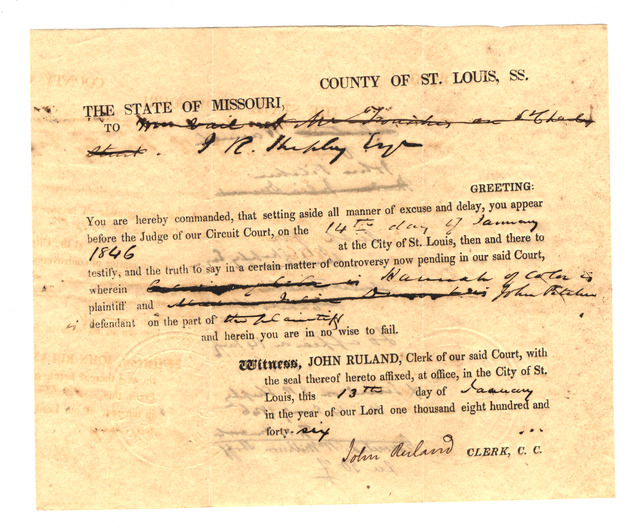 COUNTY OF ST. LOUIS, SS.
THE STATE OF MISSOURI,
TO
J R. Shepley Esqr
GREETING:
You are hereby commanded, that setting aside all manner of excuse and delay, you appear
before the Judge of our Circuit Court, on the 14th day of January
1846 at the City of St. Louis, then and there to
testify, and the truth to say in a certain matter of controversy now pending in our said Court,
wherein Hannah of Color is
plaintiff and John Pitcher
is defendant on the part of the plaintiff
and herein you are in no wise to fail.
Witness, JOHN RULAND, Clerk of our said Court, with
the seal thereof hereto affixed, at office, in the City of St.
Louis, this 13th day of January
in the year of our Lord one thousand eight hundred and
forty-six
John Ruland CLERK, C. C.